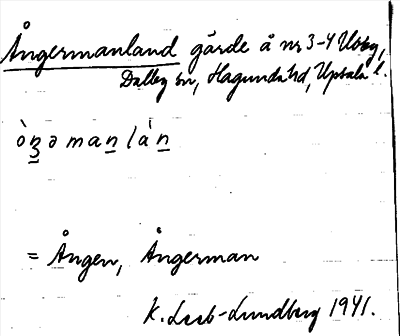 Ångermanland gärde å nr 3-4 Usby,
Dalby sn, Hagunda hd, Upsala l.
òn̲ʒəman̲làn̲
= Ången, Ångerman
K. Leeb-Lundberg 1941.